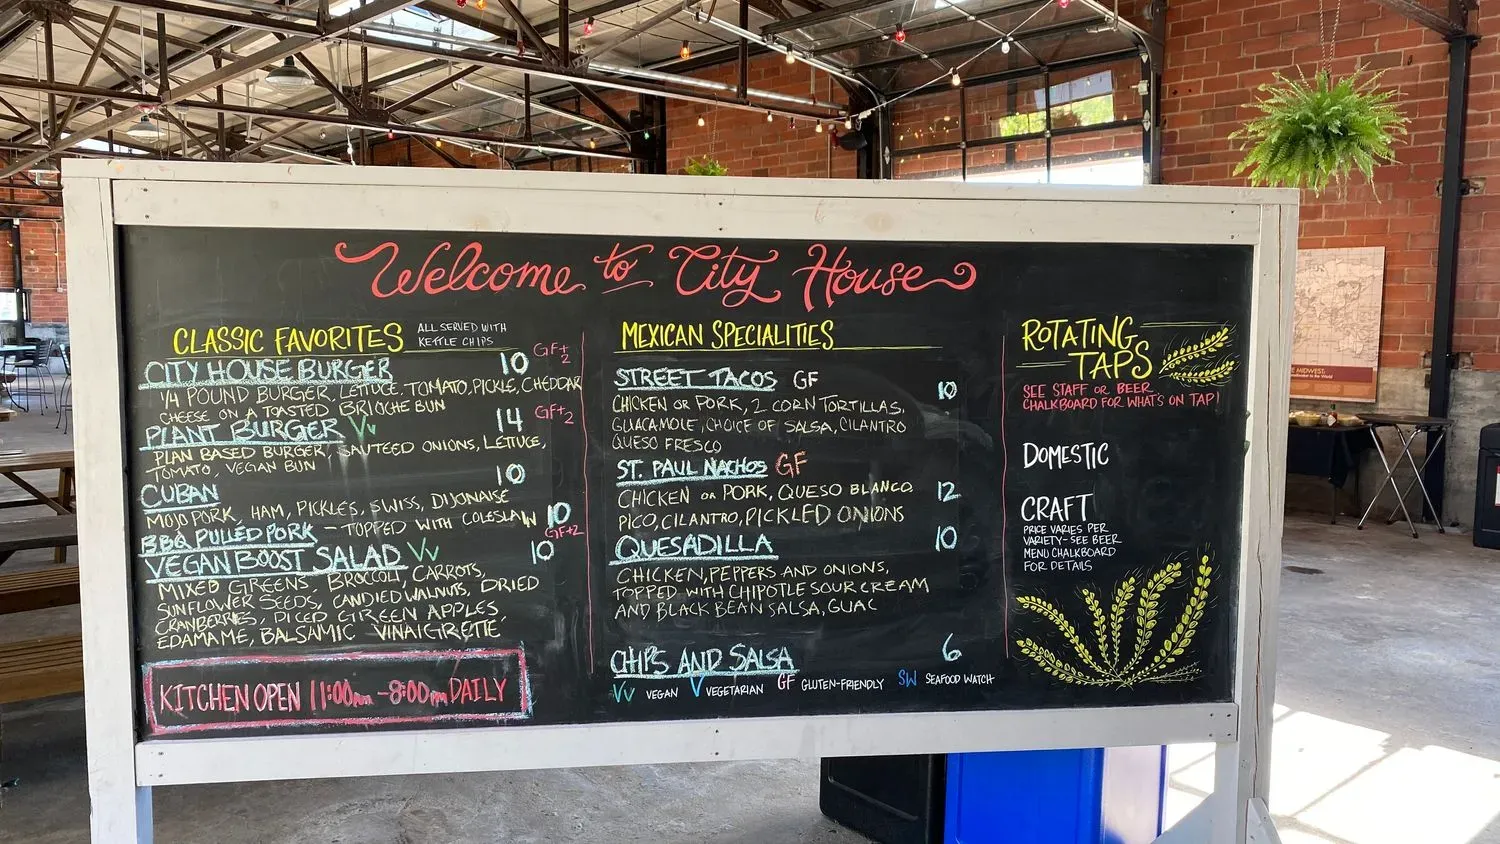 Welcome to City House
CLASSIC FAVORITES
ALL SERVED WITH
KETTLE CHIPS
CITY HOUSE BURGER 10 GF+2
1/4 POUND BURGER, LETTUCE, TOMATO, PICKLE, CHEDDAR
CHEESE ON A TOASTED BRIOCHE BUN
PLANT BURGER Vv 14 GF+2
PLAN BASED BURGER, SAUTEED ONIONS, LETTUCE,
TOMATO, VEGAN BUN
CUBAN 10
MOJO PORK, HAM, PICKLES, SWISS, DIJONAISE
BBQ PULLED PORK - TOPPED WITH COLESLAW 10 GF+2
VEGAN BOOST SALAD Vv 10
MIXED GREENS, BROCCOLI, CARROTS,
SUNFLOWER SEEDS, CANDIED WALNUTS, DRIED
CRANBERRIES, DICED GREEN APPLES,
EDAMAME, BALSAMIC VINAIGRETTE
KITCHEN OPEN 11:00am - 8:00pm DAILY
MEXICAN SPECIALITIES
STREET TACOS GF 10
CHICKEN OR PORK, 2 CORN TORTILLAS,
GUACAMOLE, CHOICE OF SALSA, CILANTRO
QUESO FRESCO
ST. PAUL NACHOS GF
CHICKEN OR PORK, QUESO BLANCO 12
PICO, CILANTRO, PICKLED ONIONS
QUESADILLA 10
CHICKEN, PEPPERS AND ONIONS,
TOPPED WITH CHIPOTLE SOUR CREAM
AND BLACK BEAN SALSA, GUAC
CHIPS AND SALSA 6
Vv VEGAN V VEGETARIAN GF GLUTEN-FRIENDLY SW SEAFOOD WATCH
ROTATING
TAPS
SEE STAFF OR BEER
CHALKBOARD FOR WHAT'S ON TAP!
DOMESTIC
CRAFT
PRICE VARIES PER
VARIETY - SEE BEER
MENU CHALKBOARD
FOR DETAILS